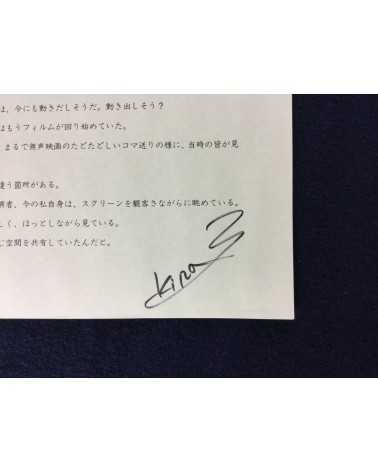 は、今にも動きだしそうだ。動き出しそう？
はもうフィルムが回り始めていた。
まるで無声映画のたどたどしいコマ送りの様に、当時の皆が見
違う箇所がある。
者、今の私自身は、スクリーンを観客さながらに眺めている。
しく、ほっとしながら見ている。
じ空間を共有していたんだと。
kira